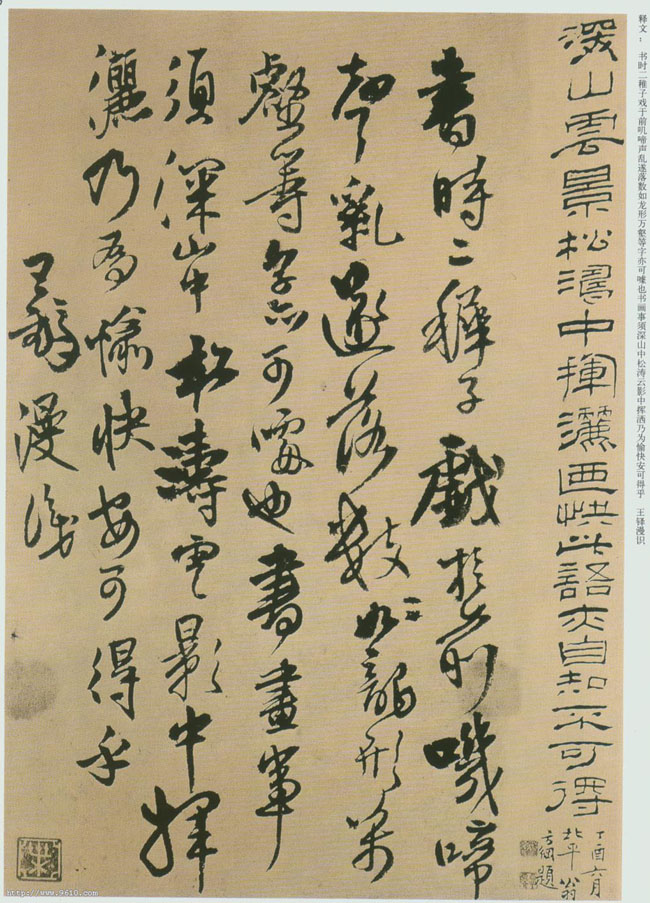 释文： 书时二稚子戏于前叽啼声乱遂落数如龙形万壑等字亦可噱也书画事须深山中松涛云影中挥洒乃为愉快安可得乎 王铎漫识
深山雲景松濤中揮灑快此語亦自知不可得
丁酉六月
北平翁
方綱題
書時二穉子戲於前嘰啼
聲亂遂落數如龍形萬
壑等字亦可噱也書畫事
須深山中松濤雲影中揮
灑乃爲愉快安可得乎
王鐸漫識
http://www.9610.com